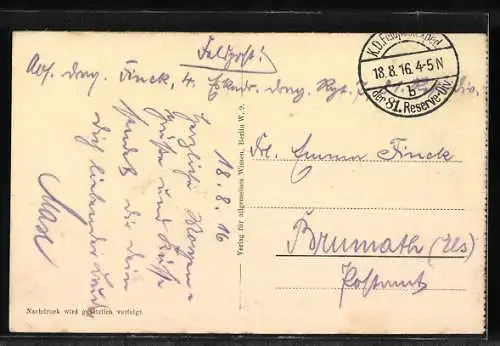 Feldpost!
Abs. Drag. Finck, 4. Eskdr. Drag. Rgt.
K.D. Feldpostexped
18.8.16. 4-5 N
b
der 81. Reserve-Div.
18.8.16
Herzliche Morgen-
grüße und Küsse
sendet dir dein
dich liebender Bruder
Max
Frl. Emma Finck
Brumath (Els)
Postamt
Verlag für allgemeines Wissen, Berlin W. 9.
Nachdruck wird gesetzlich verfolgt.